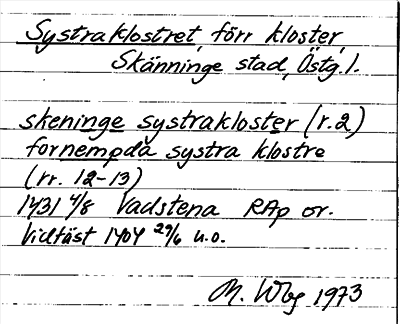 Systraklostret, förr kloster,
Skänninge stad, Östg. l.
skeninge systrakloster (r.2)
fornempda systra klostre
(rr. 12-13)
1431 4/8 Vadstena RAp or.
Vidfäst 1404 29/6 u.o.
M. Wbg 1973